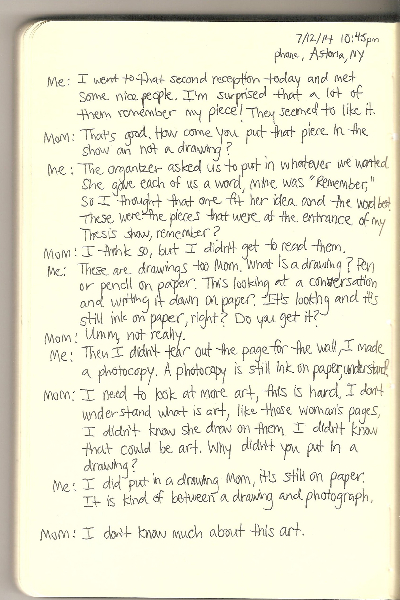 7/12/14 10:45pm
phone, Astoria, NY
Me: I went to that second reception today and met
some nice people. I'm surprised that a lot of
them remember my piece! They seemed to like it.
Mom: That's good. How come you put that piece in the
show an not a drawing?
Me: The organizer asked us to put in whatever we wanted.
She gave each of us a word, mine was "Remember,"
So I thought that one fit her idea and the word best.
These were the pieces that were at the entrance of my
Thesis show, remember?
Mom: I think so, but I didn't get to read them.
Me: These are drawings too Mom. What is a drawing? Pen
or pencil on paper. This looking at a conversation
and writing it down on paper. It's looking and it's
still ink on paper, right? Do you get it?
Mom: Umm, not really.
Me: Then I didn't tear out the page for the wall, I made
a photocopy. A photocopy is still ink on paper, understand,
Mom: I need to look at more art, this is hard. I don't
understand what is art, like those woman's pages,
I didn't know she drew on them I didn't know
that could be art. Why didn't you put in a
drawing?
Me: I did put in a drawing Mom, it's still on paper.
It is kind of between a drawing and photograph.
Mom: I don't know much about this art.